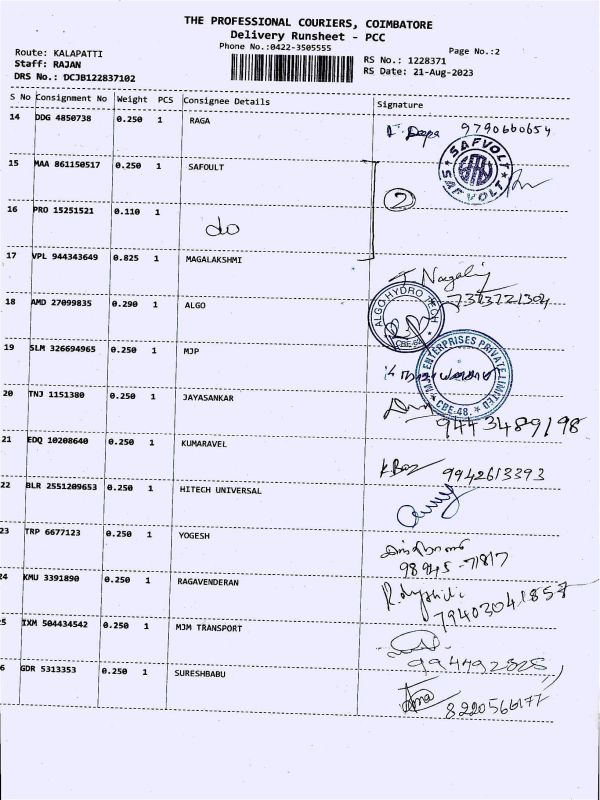 THE PROFESSIONAL COURIERS, COIMBATORE
Delivery Runsheet - PCC
Phone No.:0422-3505555
Page No.:2
Route: KALAPATTI
Staff: RAJAN
DRS No.: DCJB122837102
RS No.: 1228371
RS Date: 21-Aug-2023
S No Consignment No Weight PCS Consignee Details Signature
14 DDG 4850738 0.250 1 RAGA
Deepa 9790660654
15 MAA 861150517 0.250 1 SAFOULT
SAFVOLT
SAFVOLT
2
16 PRO 15251521 0.110 1
do
17 VPL 944343649 0.825 1 MAGALAKSHMI
7373721304
18 AMD 27099835 0.290 1 ALGO
ALGO HYDRO TECH
CBE-62
19 SLM 326694965 0.250 1 MJP
MJP ENTERPRISES PRIVATE LIMITED
* CBE-48. *
20 TNJ 1151380 0.250 1 JAYASANKAR
9443489198
21 EDQ 10208640 0.250 1 KUMARAVEL
9942613393
22 BLR 2551209653 0.250 1 HITECH UNIVERSAL
23 TRP 6677123 0.250 1 YOGESH
98945-71817
24 KMU 3391890 0.250 1 RAGAVENDERAN
79403041857
5 IXM 504434542 0.250 1 MJM TRANSPORT
994492825
6 GDR 5313353 0.250 1 SURESHBABU
8220566177